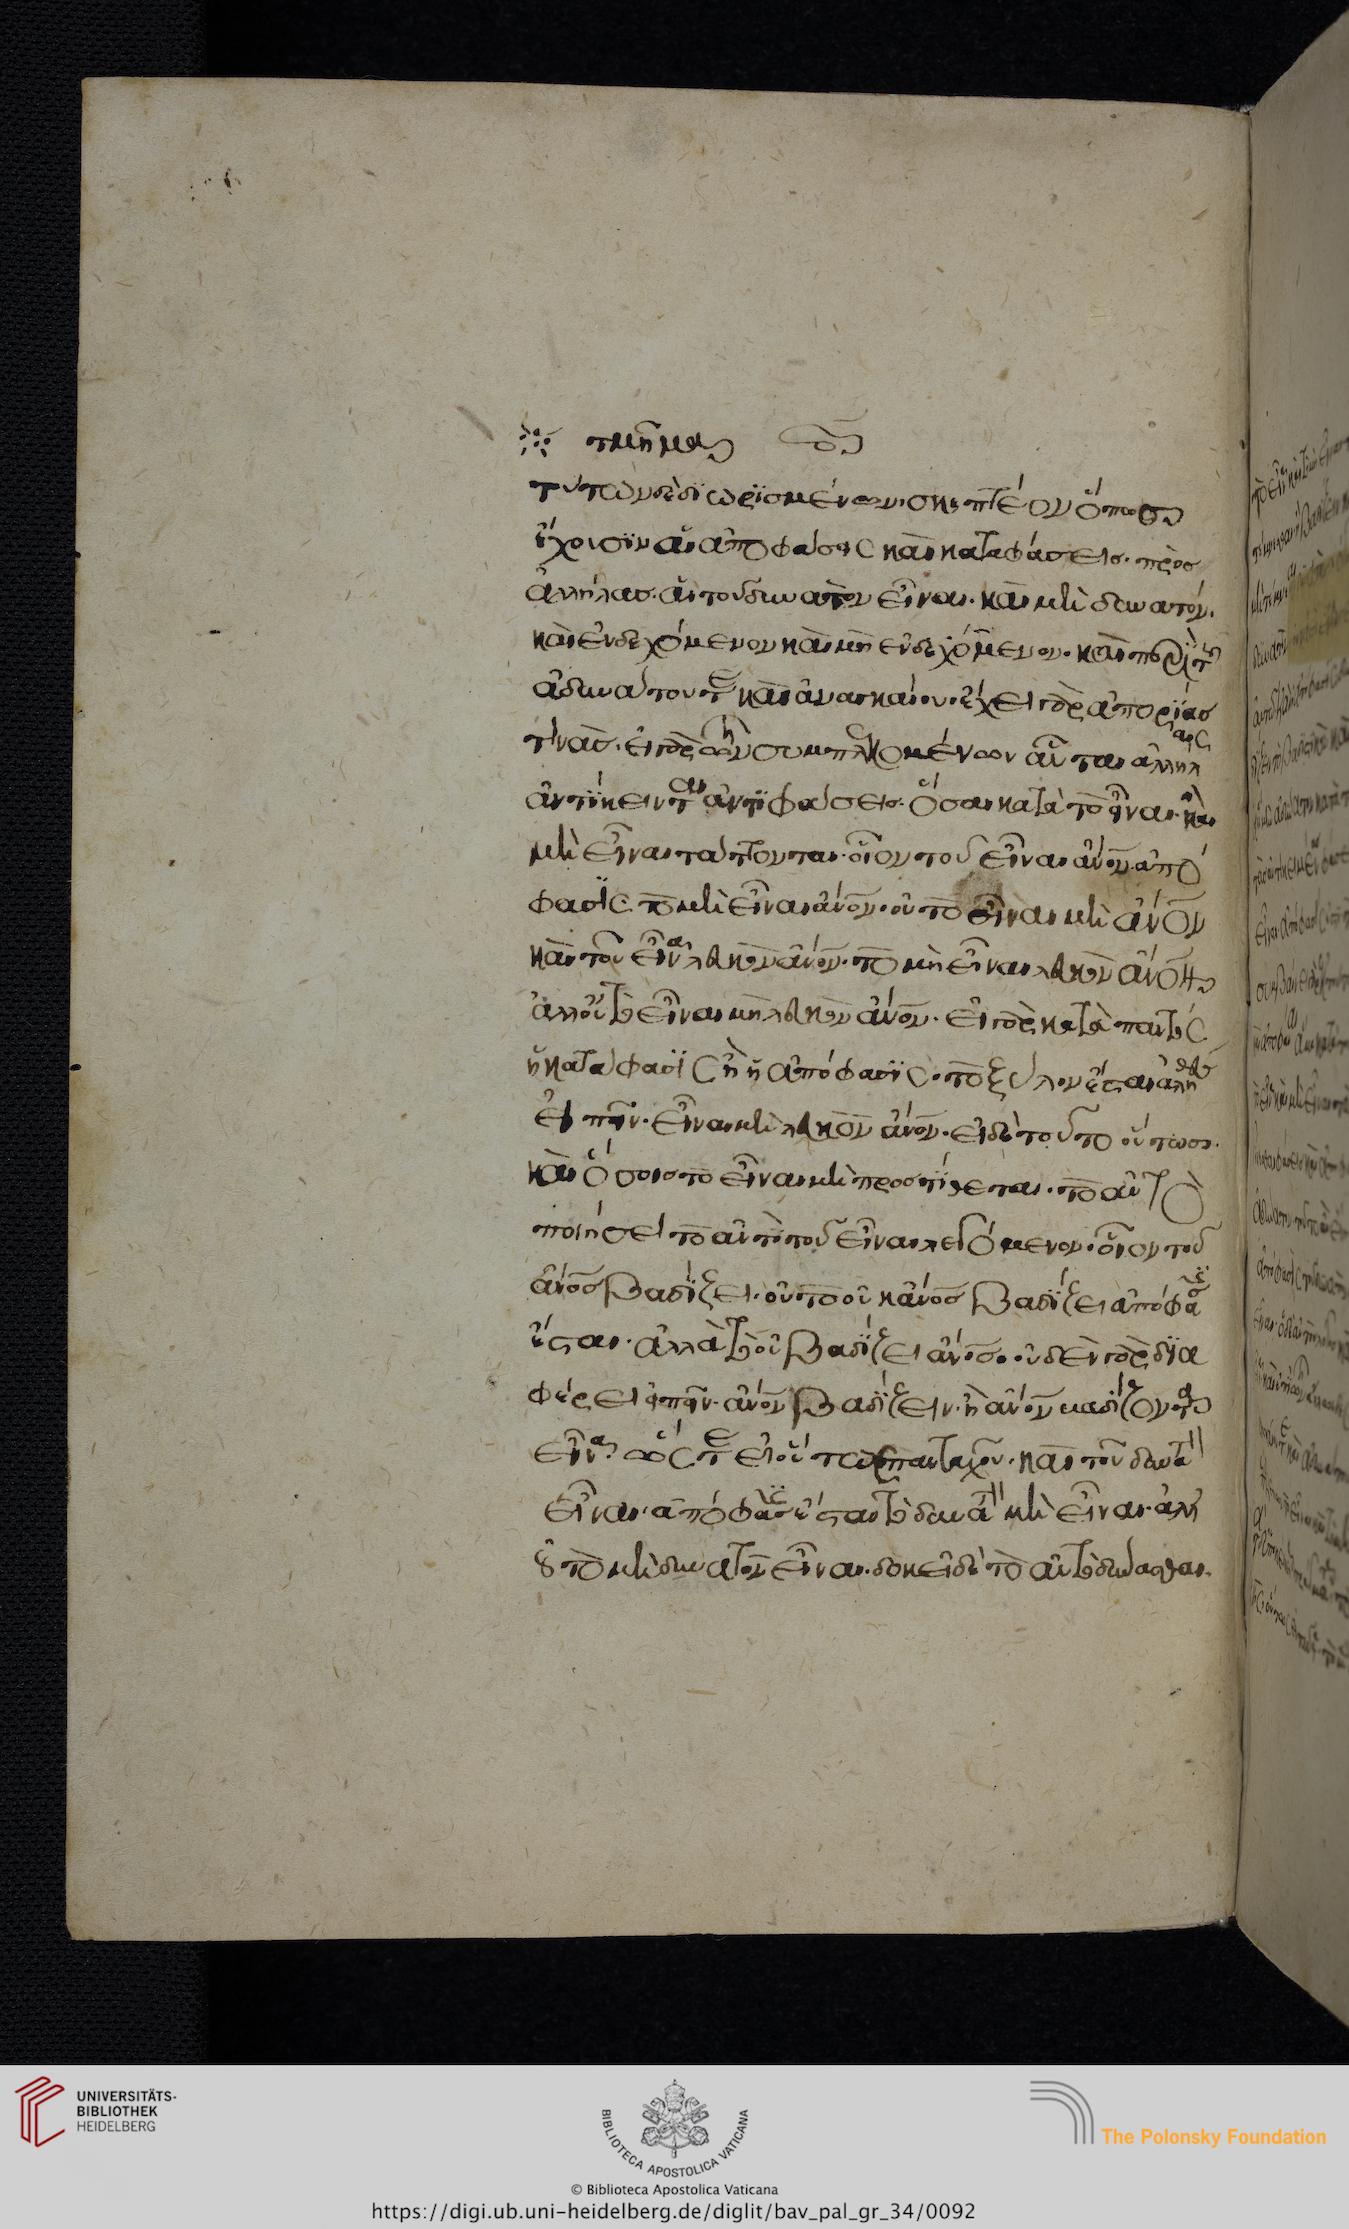 τμῆμα
τούτων δὲ διωρισμένων· σκεπτέον ὅπως
ἔχουσιν αἱ ἀποφάσεις καὶ καταφάσεις· πρὸς
ἀλλήλας· αἱ τοῦ δυνατὸν εἶναι· καὶ μὴ δυνατόν·
καὶ ἐνδεχόμενον καὶ μὴ ἐνδεχόμενον· καὶ περὶ τοῦ
ἀδυνάτου τε καὶ ἀναγκαίου· ἔχει γὰρ ἀπορίας
τινάς· εἰ γὰρ τῶν συμπλεκομένων αὗται ἀλλήλαις
ἀντίκεινται ἀντιφάσεις· ὅσαι κατὰ τὸ εἶναι· καὶ
μὴ εἶναι τάττονται· οἷον τοῦ εἶναι ἄνον ἀπό
φασις τὸ μὴ εἶναι ἄνον· οὐ τὸ εἶναι μὴ ἄνον
καὶ τοῦ εἶναι λευκὸν ἄνον· τὸ μὴ εἶναι λευκὸν ἄνον
ἀλλ' οὐ τὸ εἶναι μὴ λευκὸν ἄνον· εἰ γὰρ κατὰ παντὸς
ἡ κατάφασις ἢ ἡ ἀπόφασις· τὸ ξύλον ἔσται ἀληθὲς
εἰπεῖν· εἶναι μὴ λευκὸν ἄνον· εἰ δὲ τοῦτο οὕτως·
καὶ ὅσοις τὸ εἶναι μὴ προστίθεται· τὸ αὐτὸ
ποιήσει τὸ ἀντὶ τοῦ εἶναι λεγόμενον· οἷον τοῦ
ἄνος βαδίζει· οὐ τὸ οὐκ ἄνος βαδίζει ἀπόφασις
ἔσται· ἀλλὰ τὸ οὐ βαδίζει ἄνος· οὐδὲν γὰρ δια
φέρει εἰπεῖν· ἄνον βαδίζειν· ἢ ἄνον βαδίζοντα
εἶναι· ὥστε εἰ οὕτως πανταχοῦ· καὶ τοῦ δυνατὸν
εἶναι· ἀπόφασις ἔσται τὸ δυνατὸν μὴ εἶναι· ἀλλ'
οὐ τὸ μὴ δυνατὸν εἶναι· δοκεῖ δὲ τὸ αὐτὸ δύνασθαι·
UNIVERSITÄTS-
BIBLIOTHEK
HEIDELBERG
BIBLIOTECA APOSTOLICA VATICANA
The Polonsky Foundation
© Biblioteca Apostolica Vaticana
https://digi.ub.uni-heidelberg.de/diglit/bav_pal_gr_34/0092